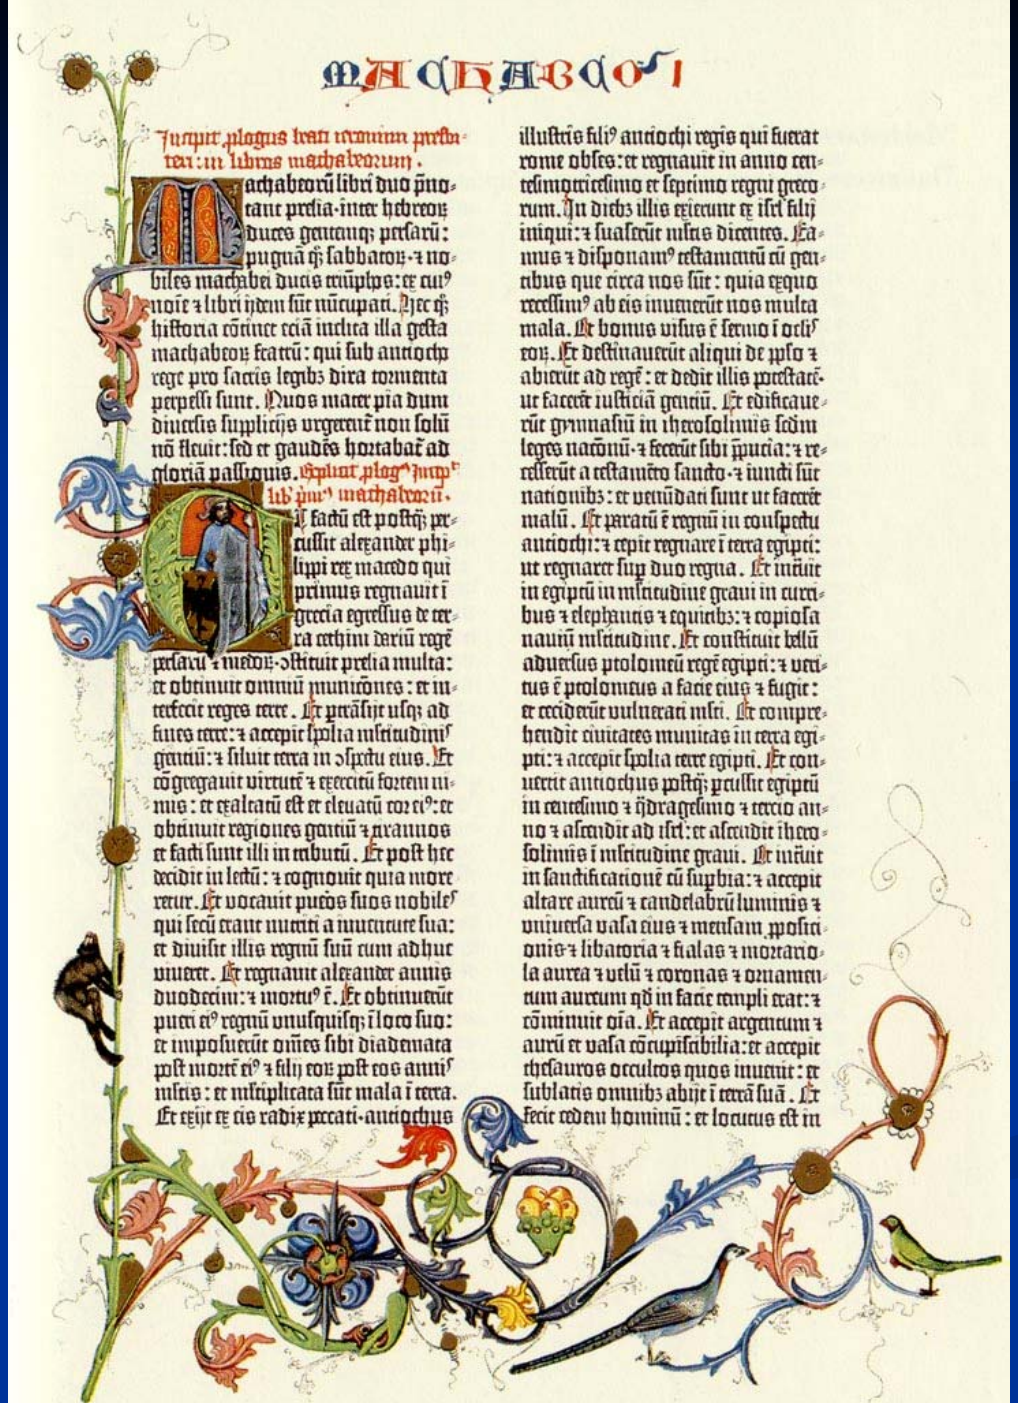 MACHABEO⁊ I
Incipit plogus beati ieronimi presbi-
teri: in libros machabeorum.
Machabeorū libri duo p̄no-
tant prelia·inter hebreoꝝ
duces gentemqꝫ persarū:
pugnā qꝫ sabbatoꝝ·⁊ no-
biles machabei ducis triūphos: ex cuiꝰ
noīe ⁊ libri ijdem sūt nūcupati. Hec qꝫ
historia cōtinet eciā inclita illa gesta
machabeoꝝ fratrū: qui sub antiocho
rege pro sacris legibꝫ dira tormenta
perpessi sunt. Quos mater pia dum
diversis supplicijs urgerent̄ non solū
nō flevit: sed et gaudēs hortabat̄ ad
gloriā passionis. Explicit plogꝰ Incipt̄
lib̄ pmꝰ machabeorū.
Et factū est postqꝫ per-
cussit alexander phi-
lippi rex macedo qui
primus regnavit ī
grecia egressus de ter-
ra cethim dariū regē
persarū ⁊ medoꝝ·ꝯstituit prelia multa:
et obtinuit omniū municōnes: et in-
terfecit reges terre. Et ptrāsijt usqꝫ ad
fines terre: ⁊ accepit spolia ml̄titudinis
gentiū: ⁊ siluit terra in ꝯspectu eius. Et
cōgregavit virtutē ⁊ exercitū fortem ni-
mis: et exaltatū est et elevatū cor eiꝰ: et
obtinuit regiones gentiū ⁊ tirannos
et facti sunt illi in tributū. Et post hec
decidit in lectū: ⁊ cognovit quia more-
retur. Et vocavit puēos suos nobiles
qui secū erant nutriti a iuventute sua:
et divisit illis regnū suū cum adhuc
viveret. Et regnavit alexander annis
duodecim: ⁊ mortuꝰ ē. Et obtinuerūt
pueri eiꝰ regnū unusquisqꝫ ī loco suo:
et imposuerūt oīnes sibi diademata
post mortē eiꝰ ⁊ filij eoꝝ post eos annis
ml̄tis: et ml̄tiplicata sūt mala ī terra.
Et exijt ex eis radix peccati·antiochus
illustris filiꝰ antiochi regis qui fuerat
rome obses: et regnavit in anno cen-
tesimotricesimo et septimo regni greco-
rum. In diebꝫ illis exierunt ex isrl̄ filij
iniqui: ⁊ suaserūt ml̄tis dicentes. Ea-
mus ⁊ disponamꝰ testamentū cū gen-
tibus que circa nos sūt: quia exquo
recessimꝰ ab eis invenerūt nos multa
mala. Et bonus visus ē sermo ī oclis
eoꝝ. Et destinaverūt aliqui de pplo ⁊
abierūt ad regē: et dedit illis potestatē·
ut facerēt iusticiā gentiū. Et edificave-
rūt gymnasiū in iherosolimis scdm
leges nacōnū·⁊ fecerūt sibi p̄pucia: ⁊ re-
cesserūt a testamēto sancto·⁊ iuncti sūt
nationibꝫ: et venūdati sunt ut facerēt
malū. Et paratū ē regnū in conspectu
antiochi: ⁊ cepit regnare ī terra egipti:
ut regnaret sup duo regna. Et int̄vit
in egiptū in ml̄titudine gravi in curri-
bus ⁊ elephantis ⁊ equitibꝫ: ⁊ copiosa
naviū ml̄titudine. Et constituit bellū
adversus ptolomeū regē egipti: ⁊ veri-
tus ē ptolomeus a facie eius ⁊ fugit:
et ceciderūt vulnerati ml̄ti. Et compre-
hendit civitates munitas in terra egi-
pti: ⁊ accepit spolia terre egipti. Et con-
vertit antiochus postqꝫ pcussit egiptū
in centesimo ⁊ q̄dragesimo ⁊ tercio an-
no ⁊ ascendit ad isrl̄: et ascendit ihero-
solimis ī ml̄titudine gravi. Et int̄vit
in sanctificationē cū supbia: ⁊ accepit
altare aureū ⁊ candelabrū luminis ⁊
universa vasa eius ⁊ mensam pposici-
onis ⁊ libatoria ⁊ fialas ⁊ mortario-
la aurea ⁊ velū ⁊ coronas ⁊ ornamen-
tum aureum qd̄ in facie templi erat: ⁊
cōminuit oīa. Et accepit argentum ⁊
aurū et vasa cōcupiscibilia: et accepit
thesauros occultos quos invenit: et
sublatis omnibꝫ abijt ī terrā suā. Et
fecit cedem hominū: et locutus est in